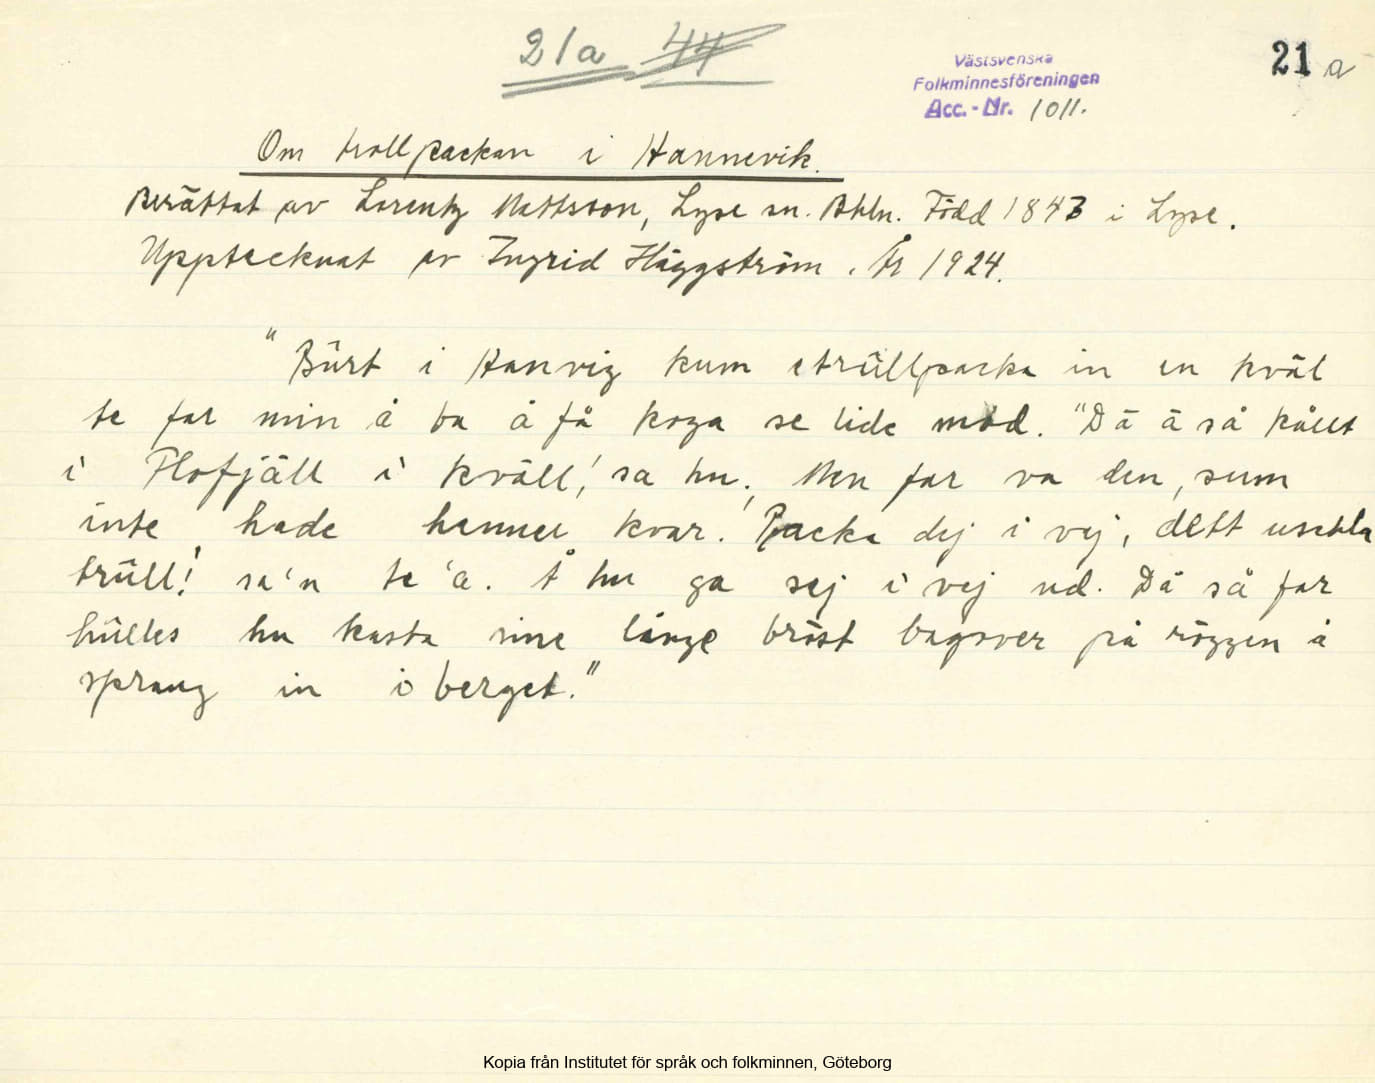 21a 44
Västsvenska
Folkminnesföreningen
Acc. - Nr. 1011.
21 a
Om trollpackan i Hannevik.
Berättat av Lorentz Mattsson, Lyse sn. Bhln. Född 1843 i Lyse.
Upptecknat av Ingrid Häggström. År 1924.
"Bûrt i Hanvig kum etrûllpacka in en kväl
te far min å ba å få koga se lide mad. "Dä ä så kållt
i Flofjäll i kväll! sa hu. Men far va den, sum
inte hade henner kvar. 'Packa dej i vej, dett usebla
trûll! sa'n te 'a. Å hu ga sej i vej ud. Då så far
hûlles hu kasta sine långe bröst bagover på röggen å
sprang in i berget."
Kopia från Institutet för språk och folkminnen, Göteborg